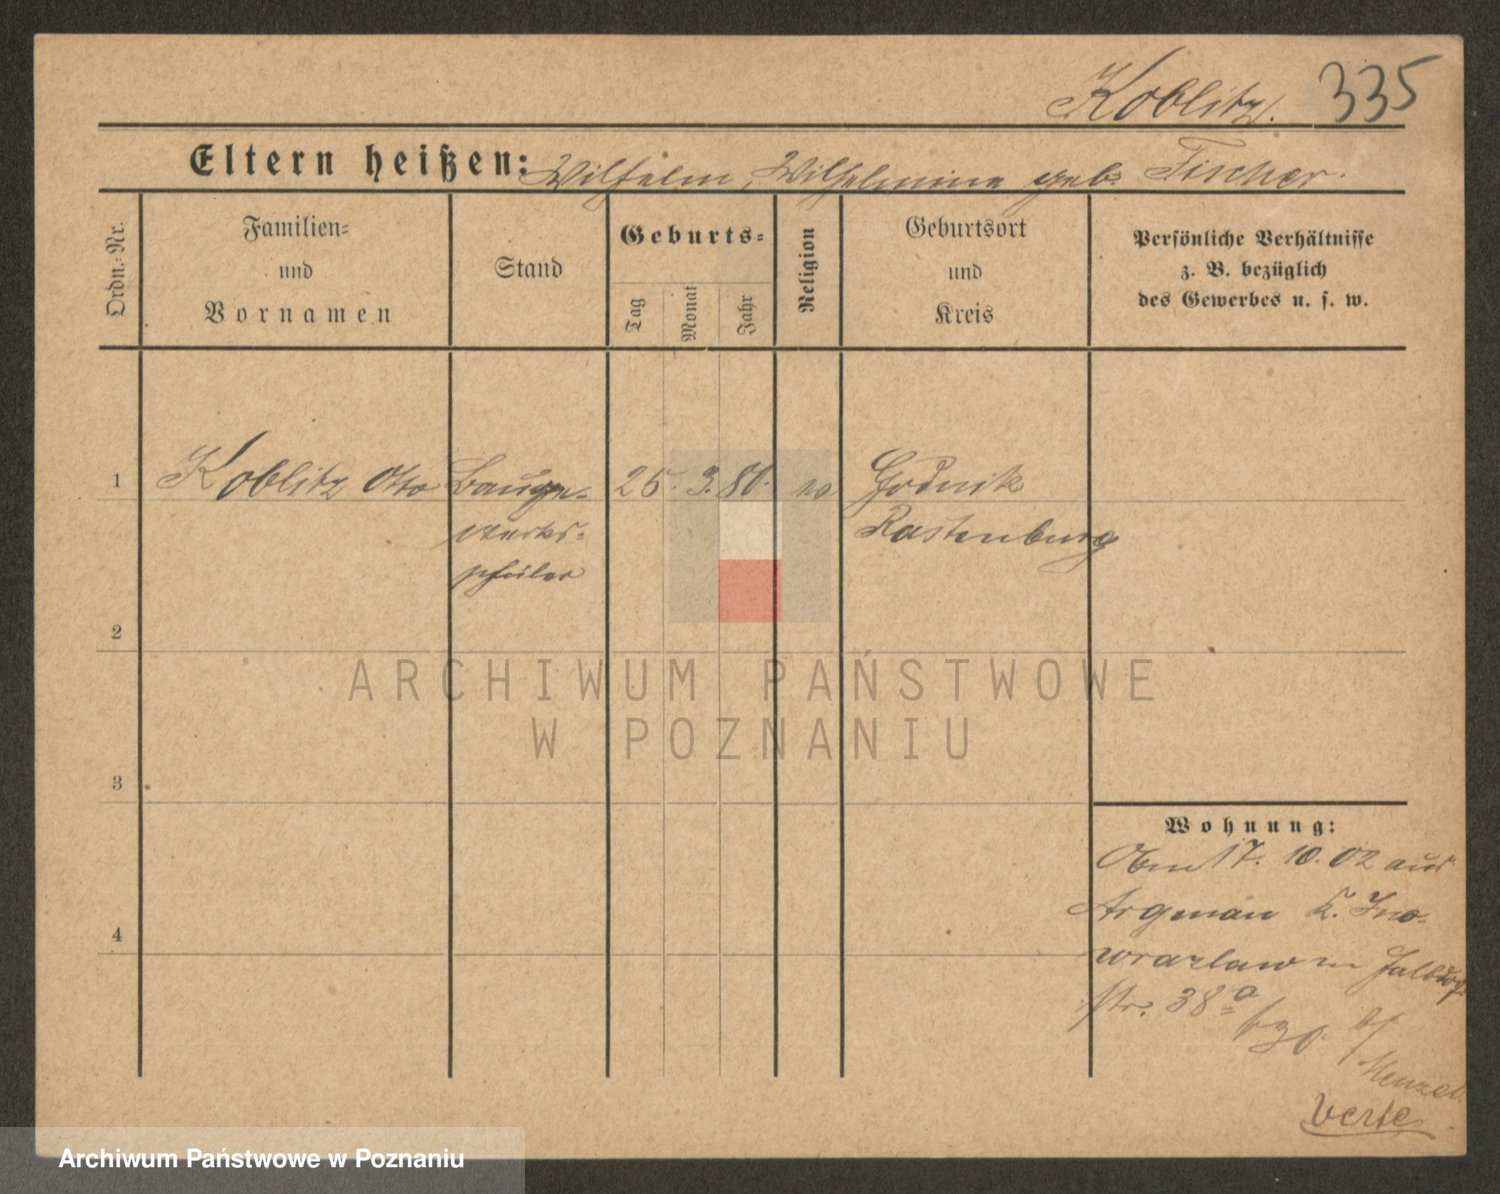 Koblitz. 335
Eltern heißen: Wilhelm, Wilhelmine geb. Fischer.
Ordn.-Nr.
Familien-
und
Vornamen
Stand
Geburts-
Tag
Monat
Jahr
Religion
Geburtsort
und
Kreis
Persönliche Verhältnisse
z. B. bezüglich
des Gewerbes u. s. w.
1 Koblitz Otto Bauge- 25. 3. 80.
werks-
schüler
Rastenburg
2
3
4
Wohnung:
17. 10. 02 aus
Argenau K. Ino-
wrazlaw in
str. 38 a
b/
Menzel
Verte
ARCHIWUM PAŃSTWOWE
W POZNANIU
Archiwum Państwowe w Poznaniu